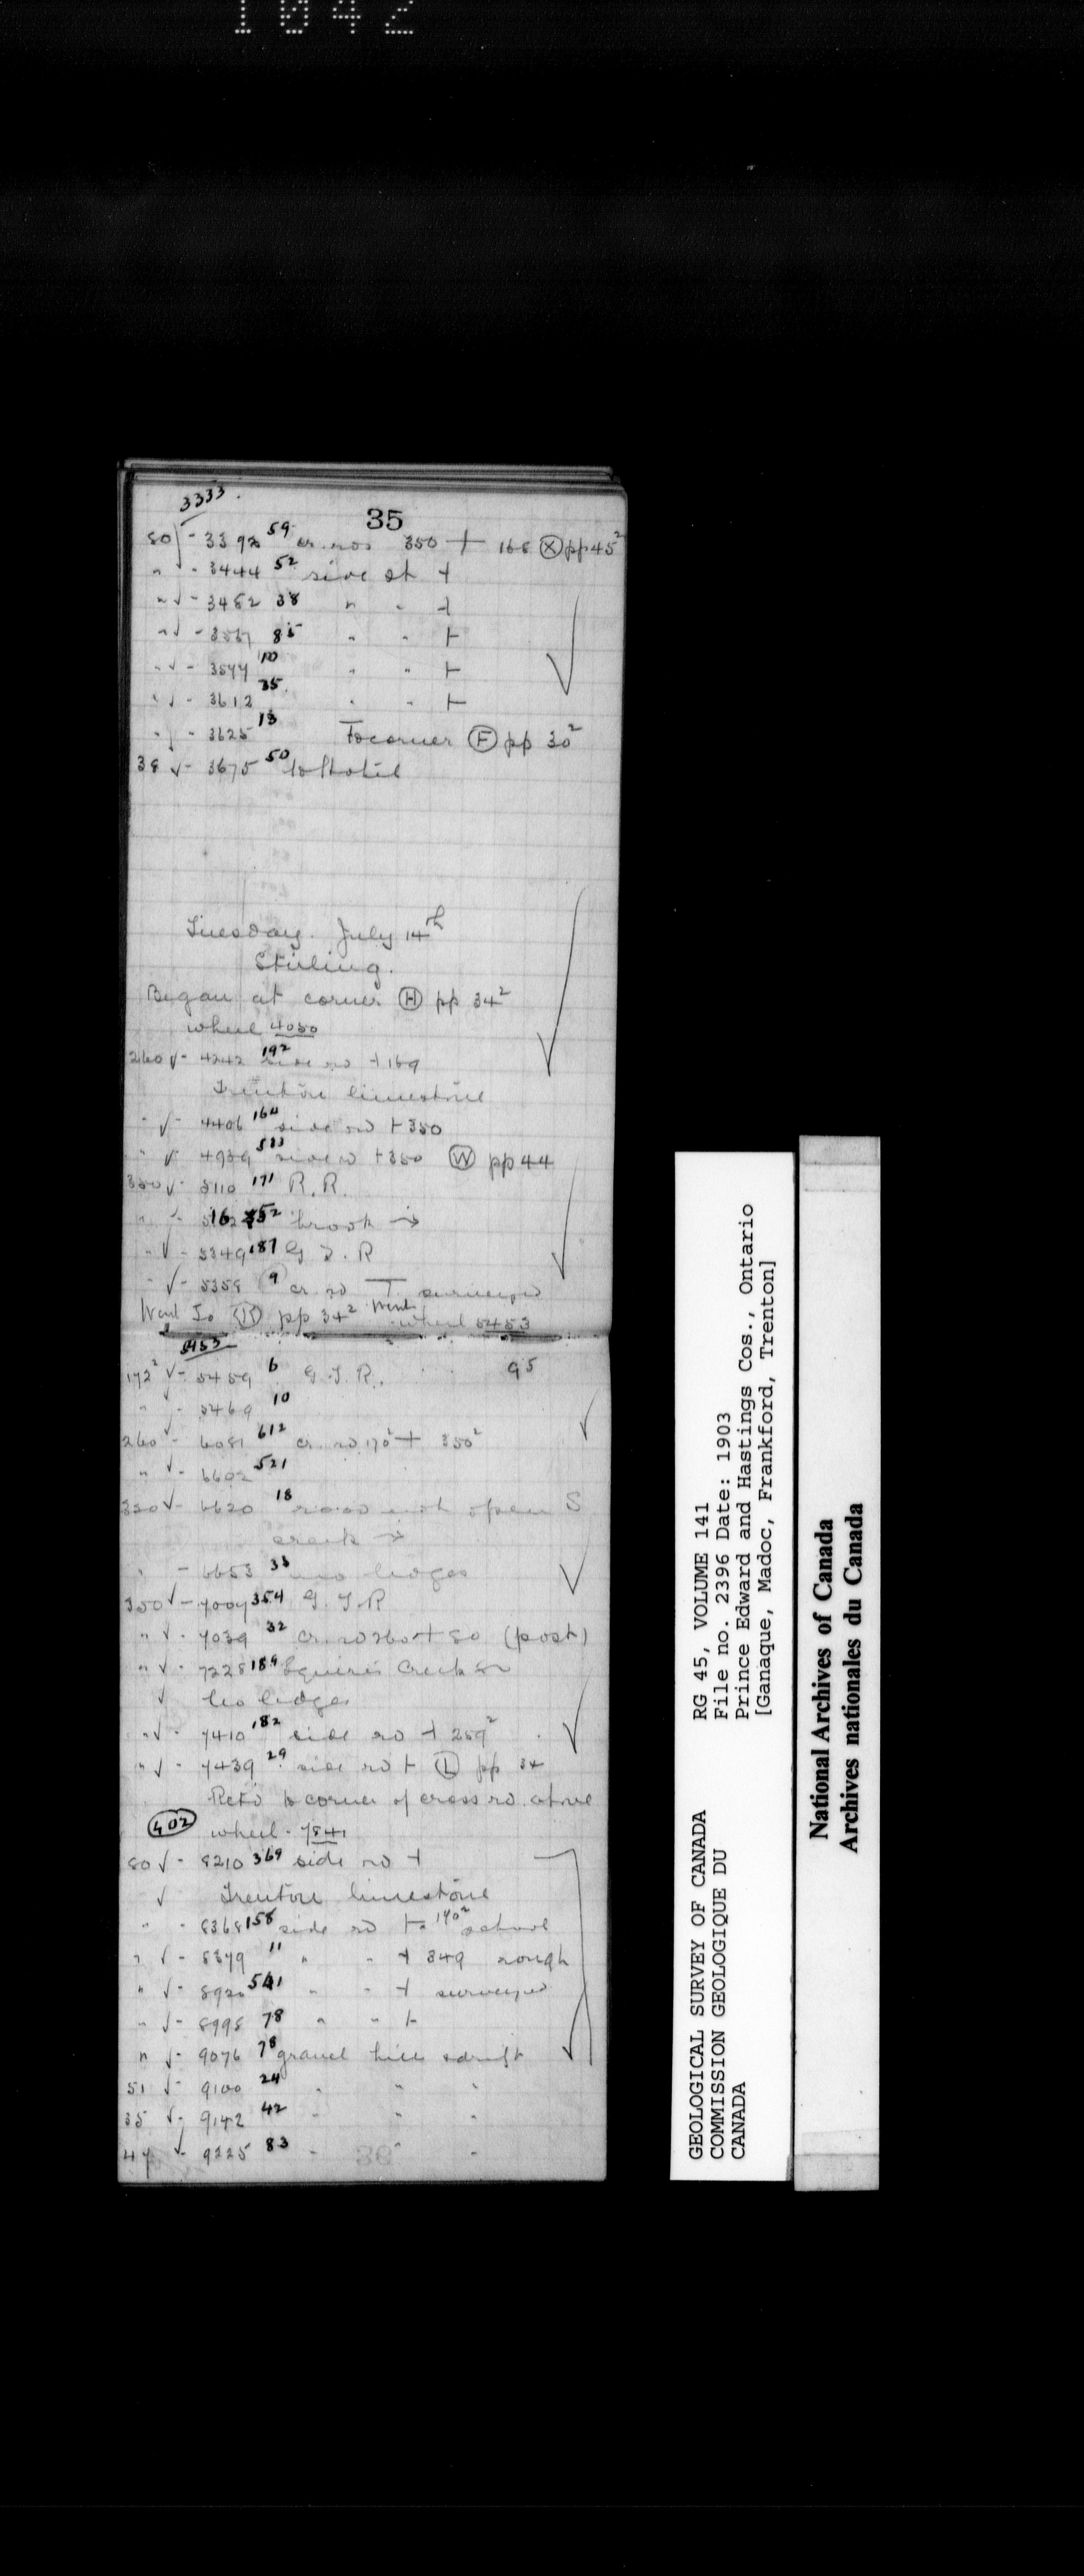 1042
3333.
35
80 √- 3392 59 cr. roads 350 + 168 Ⓧ pp 45²
" √- 3444 52 side st ⊣
" √- 3482 38 " " ⊣
" √- 3567 85 " " ⊢
" √- 3577 10 " " ⊢
" √- 3612 35 " " ⊢
" √- 3625 13 To corner Ⓕ pp 30²
38 √- 3675 50 to Hotel
Tuesday. July 14th
Stirling.
Began at corner Ⓗ pp 34²
wheel 4050
260 √- 4242 192 side rd ⊣ 169
Trenton limestone
" √- 4406 164 side rd ⊢ 350
" √- 4939 533 side rd ⊢ 350 Ⓦ pp 44
350 √- 5110 171 R.R.
" √- 5162 52 brook →
" √- 5349 187 G T. R
" √- 5358 9 cr. rd surveyed
Went To pp 34² wheel 5453
5453
172² √- 5459 6 G.T.R. 95
" √- 5469 10
260 √- 6081 612 cr. rd 170² + 350²
" √- 6602 521
350 √- 6620 18 road not open S
creek →
" - 6653 33 no ledges
350 √- 7007 354 G.T.R
" √- 7039 32 cr. rd 260 + 80 (post)
" √- 7228 189 Squires Creek
√ No ledges
" √- 7410 182 side rd ⊣ 259²
" √- 7439 29 side rd ⊢ Ⓛ pp 34
Retd to corner of cross rd. above
402 wheel - 7841
80 √- 8210 369 side rd ⊣
√ Trenton limestone
" - 8368 158 side rd ⊢ 170² school
" √- 8379 11 " " ⊣ 349 rough
" √- 8920 541 " " ⊣ surveyed
" √- 8998 78 " " ⊢
" √- 9076 78 gravel hills & drift
51 √- 9100 24 " " "
35 √- 9142 42 " " "
47 √- 9225 83 " " "
GEOLOGICAL SURVEY OF CANADA RG 45, VOLUME 141
COMMISSION GEOLOGIQUE DU File no. 2396 Date: 1903
CANADA Prince Edward and Hastings Cos., Ontario
[Ganaque, Madoc, Frankford, Trenton]
National Archives of Canada
Archives nationales du Canada